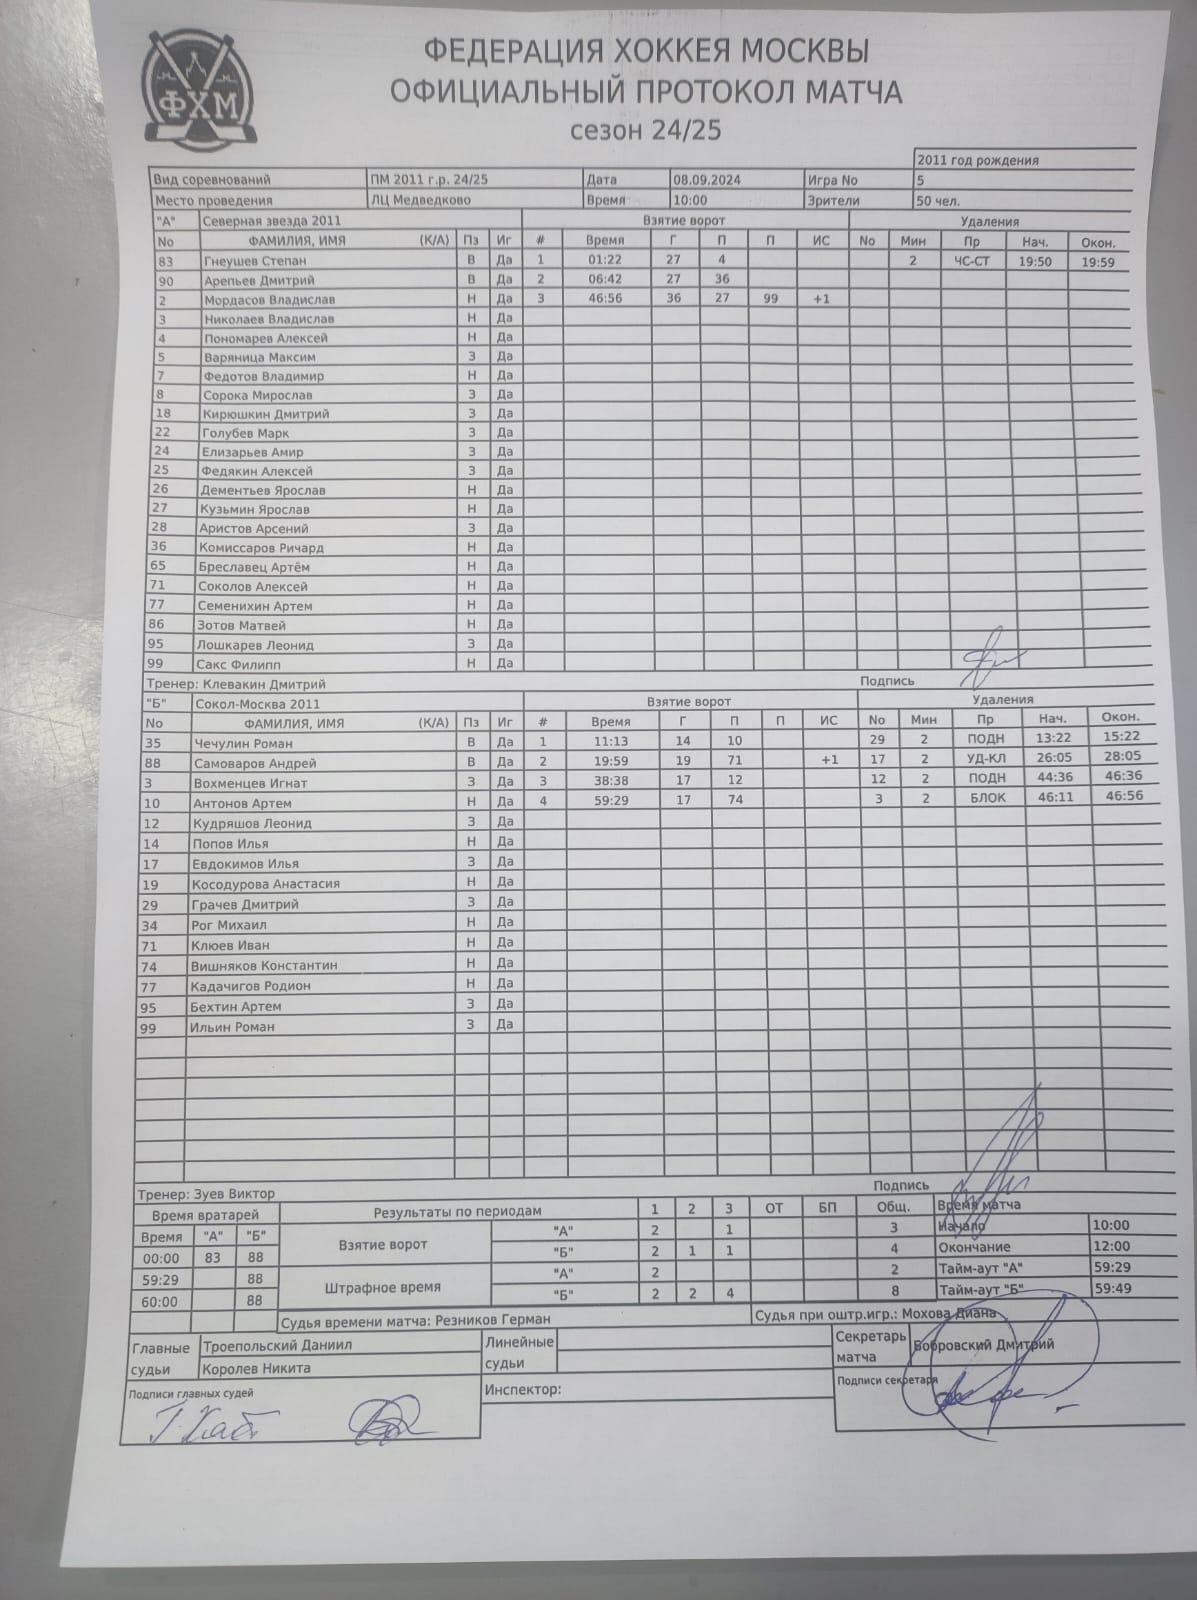 ФХМ
ФЕДЕРАЦИЯ ХОККЕЯ МОСКВЫ
ОФИЦИАЛЬНЫЙ ПРОТОКОЛ МАТЧА
сезон 24/25
2011 год рождения
Вид соревнований ПМ 2011 г.р. 24/25 Дата 08.09.2024 Игра No 5
Место проведения ЛЦ Медведково Время 10:00 Зрители 50 чел.
"А" Северная звезда 2011 Взятие ворот Удаления
No ФАМИЛИЯ, ИМЯ (К/А) Пз Иг # Время Г П П ИС No Мин Пр Нач. Окон.
83 Гнеушев Степан В Да 1 01:22 27 4 2 ЧС-СТ 19:50 19:59
90 Арепьев Дмитрий В Да 2 06:42 27 36
2 Мордасов Владислав Н Да 3 46:56 36 27 99 +1
3 Николаев Владислав Н Да
4 Пономарев Алексей Н Да
5 Варяница Максим З Да
7 Федотов Владимир Н Да
8 Сорока Мирослав З Да
18 Кирюшкин Дмитрий З Да
22 Голубев Марк З Да
24 Елизарьев Амир З Да
25 Федякин Алексей З Да
26 Дементьев Ярослав Н Да
27 Кузьмин Ярослав Н Да
28 Аристов Арсений З Да
36 Комиссаров Ричард Н Да
65 Бреславец Артём Н Да
71 Соколов Алексей Н Да
77 Семенихин Артем Н Да
86 Зотов Матвей Н Да
95 Лошкарев Леонид З Да
99 Сакс Филипп Н Да
Тренер: Клевакин Дмитрий Подпись
"Б" Сокол-Москва 2011 Взятие ворот Удаления
No ФАМИЛИЯ, ИМЯ (К/А) Пз Иг # Время Г П П ИС No Мин Пр Нач. Окон.
35 Чечулин Роман В Да 1 11:13 14 10 29 2 ПОДН 13:22 15:22
88 Самоваров Андрей В Да 2 19:59 19 71 +1 17 2 УД-КЛ 26:05 28:05
3 Вохменцев Игнат З Да 3 38:38 17 12 12 2 ПОДН 44:36 46:36
10 Антонов Артем Н Да 4 59:29 17 74 3 2 БЛОК 46:11 46:56
12 Кудряшов Леонид З Да
14 Попов Илья Н Да
17 Евдокимов Илья З Да
19 Косодурова Анастасия Н Да
29 Грачев Дмитрий З Да
34 Рог Михаил Н Да
71 Клюев Иван Н Да
74 Вишняков Константин Н Да
77 Кадачигов Родион Н Да
95 Бехтин Артем З Да
99 Ильин Роман З Да
Тренер: Зуев Виктор Подпись
Время вратарей Результаты по периодам 1 2 3 ОТ БП Общ. Время матча
Время "А" "Б" Взятие ворот "А" 2 1 3 Начало 10:00
00:00 83 88 "Б" 2 1 1 4 Окончание 12:00
59:29 88 Штрафное время "А" 2 2 Тайм-аут "А" 59:29
60:00 88 "Б" 2 2 4 8 Тайм-аут "Б" 59:49
Судья времени матча: Резников Герман Судья при оштр.игр.: Мохова Диана
Главные судьи Троепольский Даниил Линейные судьи Секретарь матча Бобровский Дмитрий
Королев Никита
Подписи главных судей Инспектор: Подписи секретаря